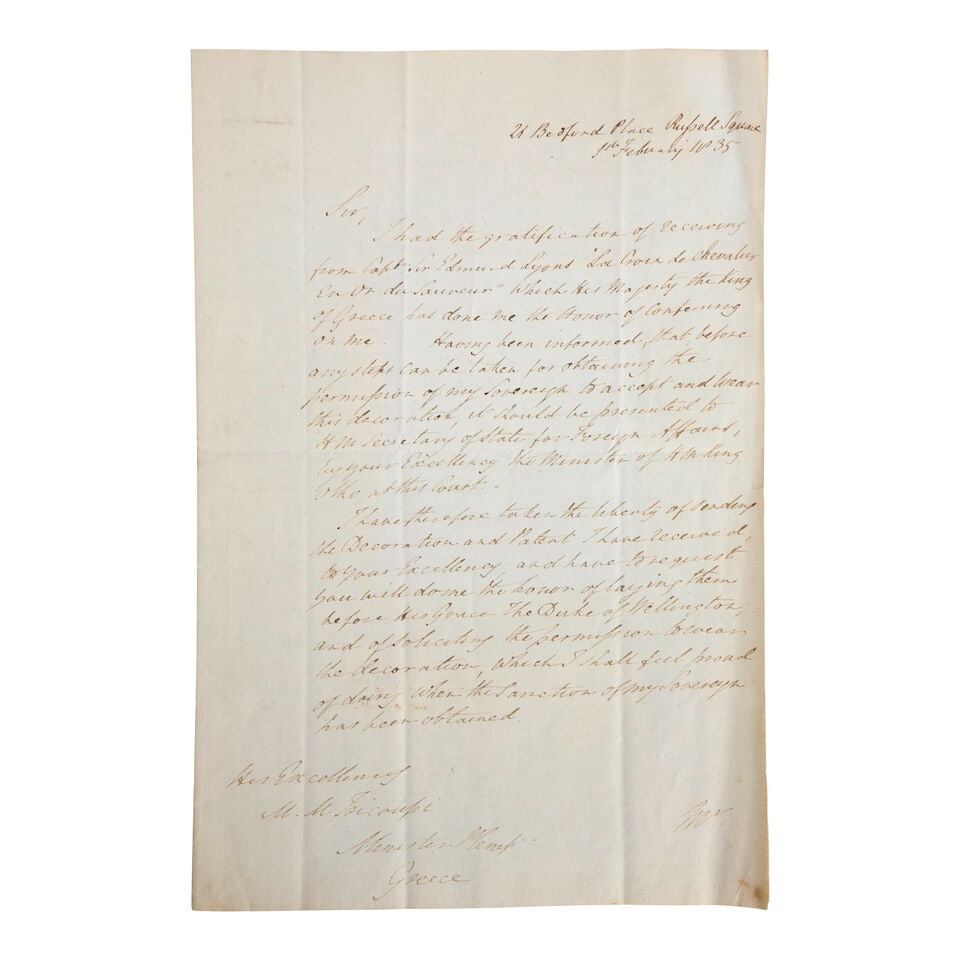 26 Bedford Place Russell Square
1st February 1835
Sir,
I had the gratification of receiving
from Captn Sir Edmund Lyons "La Croix de Chevalier
En Or du Sauveur" which His Majesty the King
of Greece has done me the Honor of Conferring
on me. Having been informed, that, before
any steps can be taken for obtaining the
permission of my Sovereign to accept and wear
this decoration, it should be presented to
HM Secretary of State for Foreign Affairs,
by your Excellency the Minister of HM King
Otho, at this Court.-
I have therefore taken the liberty of sending
the Decoration and Patent I have received,
to your Excellency and have to request
you will do me the honor of laying them
before His Grace The Duke of Wellington,
and of soliciting the permission to wear
the decoration, which I shall feel proud
of doing when the Sanction of my Sovereign
has been obtained.
His Excellency
M. M Tricoupi
Minister Plenip
Greece